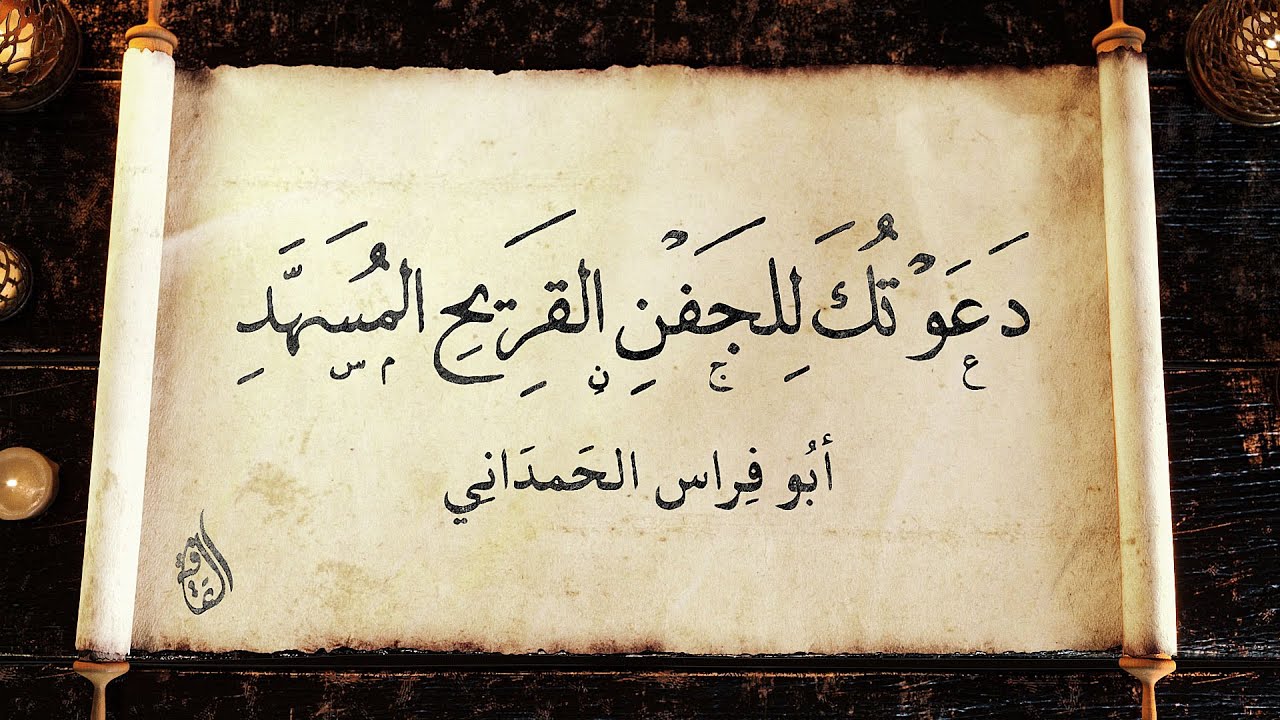 دَعَوْتُكَ لِلجَفْنِ القَرِيحِ المُسَهَّدِ
أبُو فِراس الحَمدَانِي
القافية